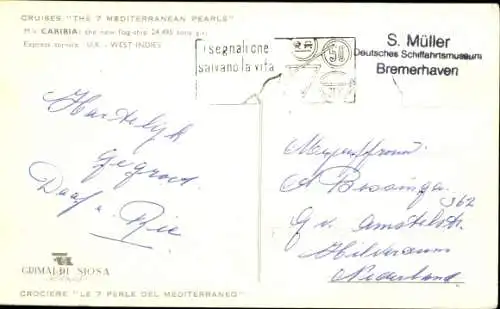 CRUISES "THE 7 MEDITERRANEAN PEARLS"
M/s CARIBIA: the new flag-ship 24.495 tons grt.
Express service U.K. - WEST INDIES
i segnali che
salvano la vita
50
S. Müller
Deutsches Schiffahrtsmuseum
Bremerhaven
Hartelijk
gegroet
Daaf en Rie
Mej.
A
G. v. Amstelstr. 362
Hilversum
Nederland
GRIMALDI SIOSA
CROCIERE "LE 7 PERLE DEL MEDITERRANEO"